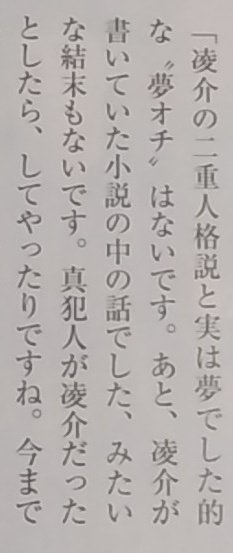 「凌介の二重人格説と実は夢でした的
な〝夢オチ〟はないです。あと、凌介が
書いていた小説の中の話でした、みたい
な結末もないです。真犯人が凌介だった
としたら、してやったりですね。今まで